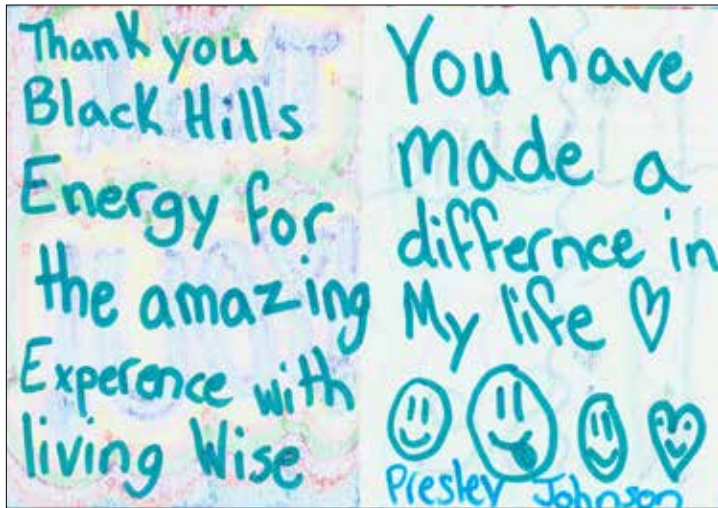 Thank you
Black Hills
Energy for
the amazing
Experence with
living Wise
You have
made a
differnce in
My life
Presley Johnson